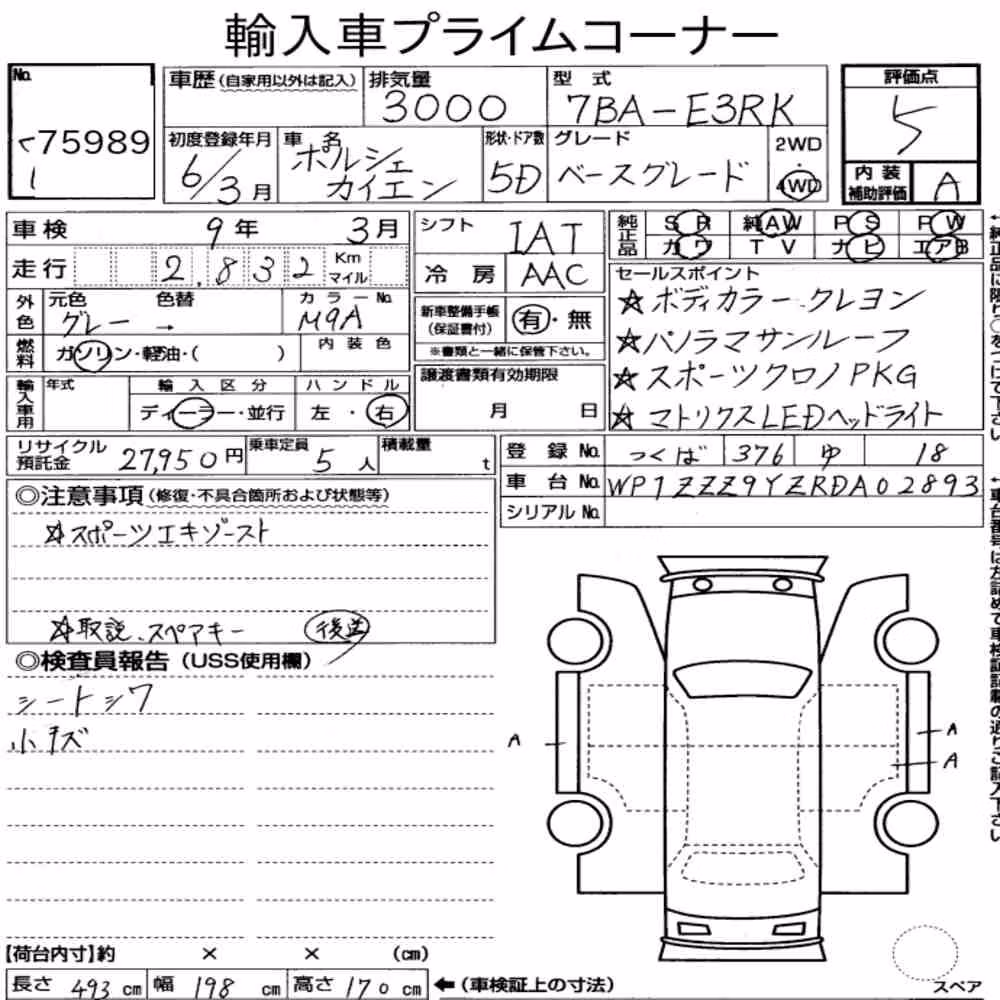 輸入車プライムコーナー
No.
75989
1
車歴 (自家用以外は記入)
排気量
3000
型式
7BA-E3RK
評価点
5
初度登録年月
6/3月
車名
ポルシェ
カイエン
形状・ドア数
5D
グレード
ベースグレード
2WD
4WD
内装
補助評価
A
車検
9年 3月
シフト
IAT
純正品
SR 純AW PS PW
カワ TV ナビ エアB
走行
2,832
Km
マイル
冷房
AAC
セールスポイント
☆ボディカラー クレヨン
☆パノラマサンルーフ
☆スポーツクロノPKG
☆マトリクスLEDヘッドライト
外色
元色 色替
グレー →
カラーNo.
M9A
新車整備手帳
(保証書付)
有・無
※書類と一緒に保管下さい。
燃料
ガソリン・軽油・( )
内装色
譲渡書類有効期限
月 日
輸入車用
年式
輸入区分
ディーラー・並行
ハンドル
左・右
リサイクル
預託金
27,950円
乗車定員
5人
積載量
t
登録No.
つくば 376 ゆ 18
車台No.
WP1ZZZ9YZRDA02893
シリアルNo.
◎注意事項(修復・不具合箇所および状態等)
☆スポーツエキゾースト
☆取説、スペアキー 後送
◎検査員報告(USS使用欄)
シートシワ
小キズ
A
A
A
【荷台内寸】約 × × (cm)
長さ 493 cm 幅 198 cm 高さ 170 cm ←(車検証上の寸法)
スペア